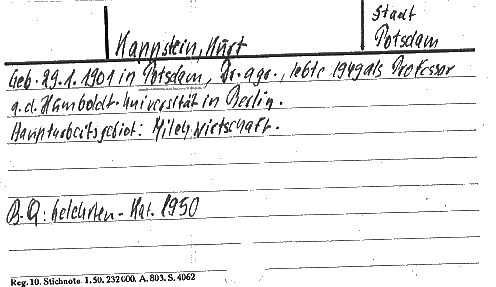 Stadt
Kannstein, Kurt
Potsdam
Geb. 29.1.1901 in Potsdam, Dr. agr., lebte 1949 als Professor
a.d. Humboldt-Universität in Berlin.
Hauptarbeitsgebiet: Milchwirtschaft.
B.Q: Gelehrten-Kal. 1950
Reg. 10. Stichnote. 1. 50. 232000. A. 803. S. 4062